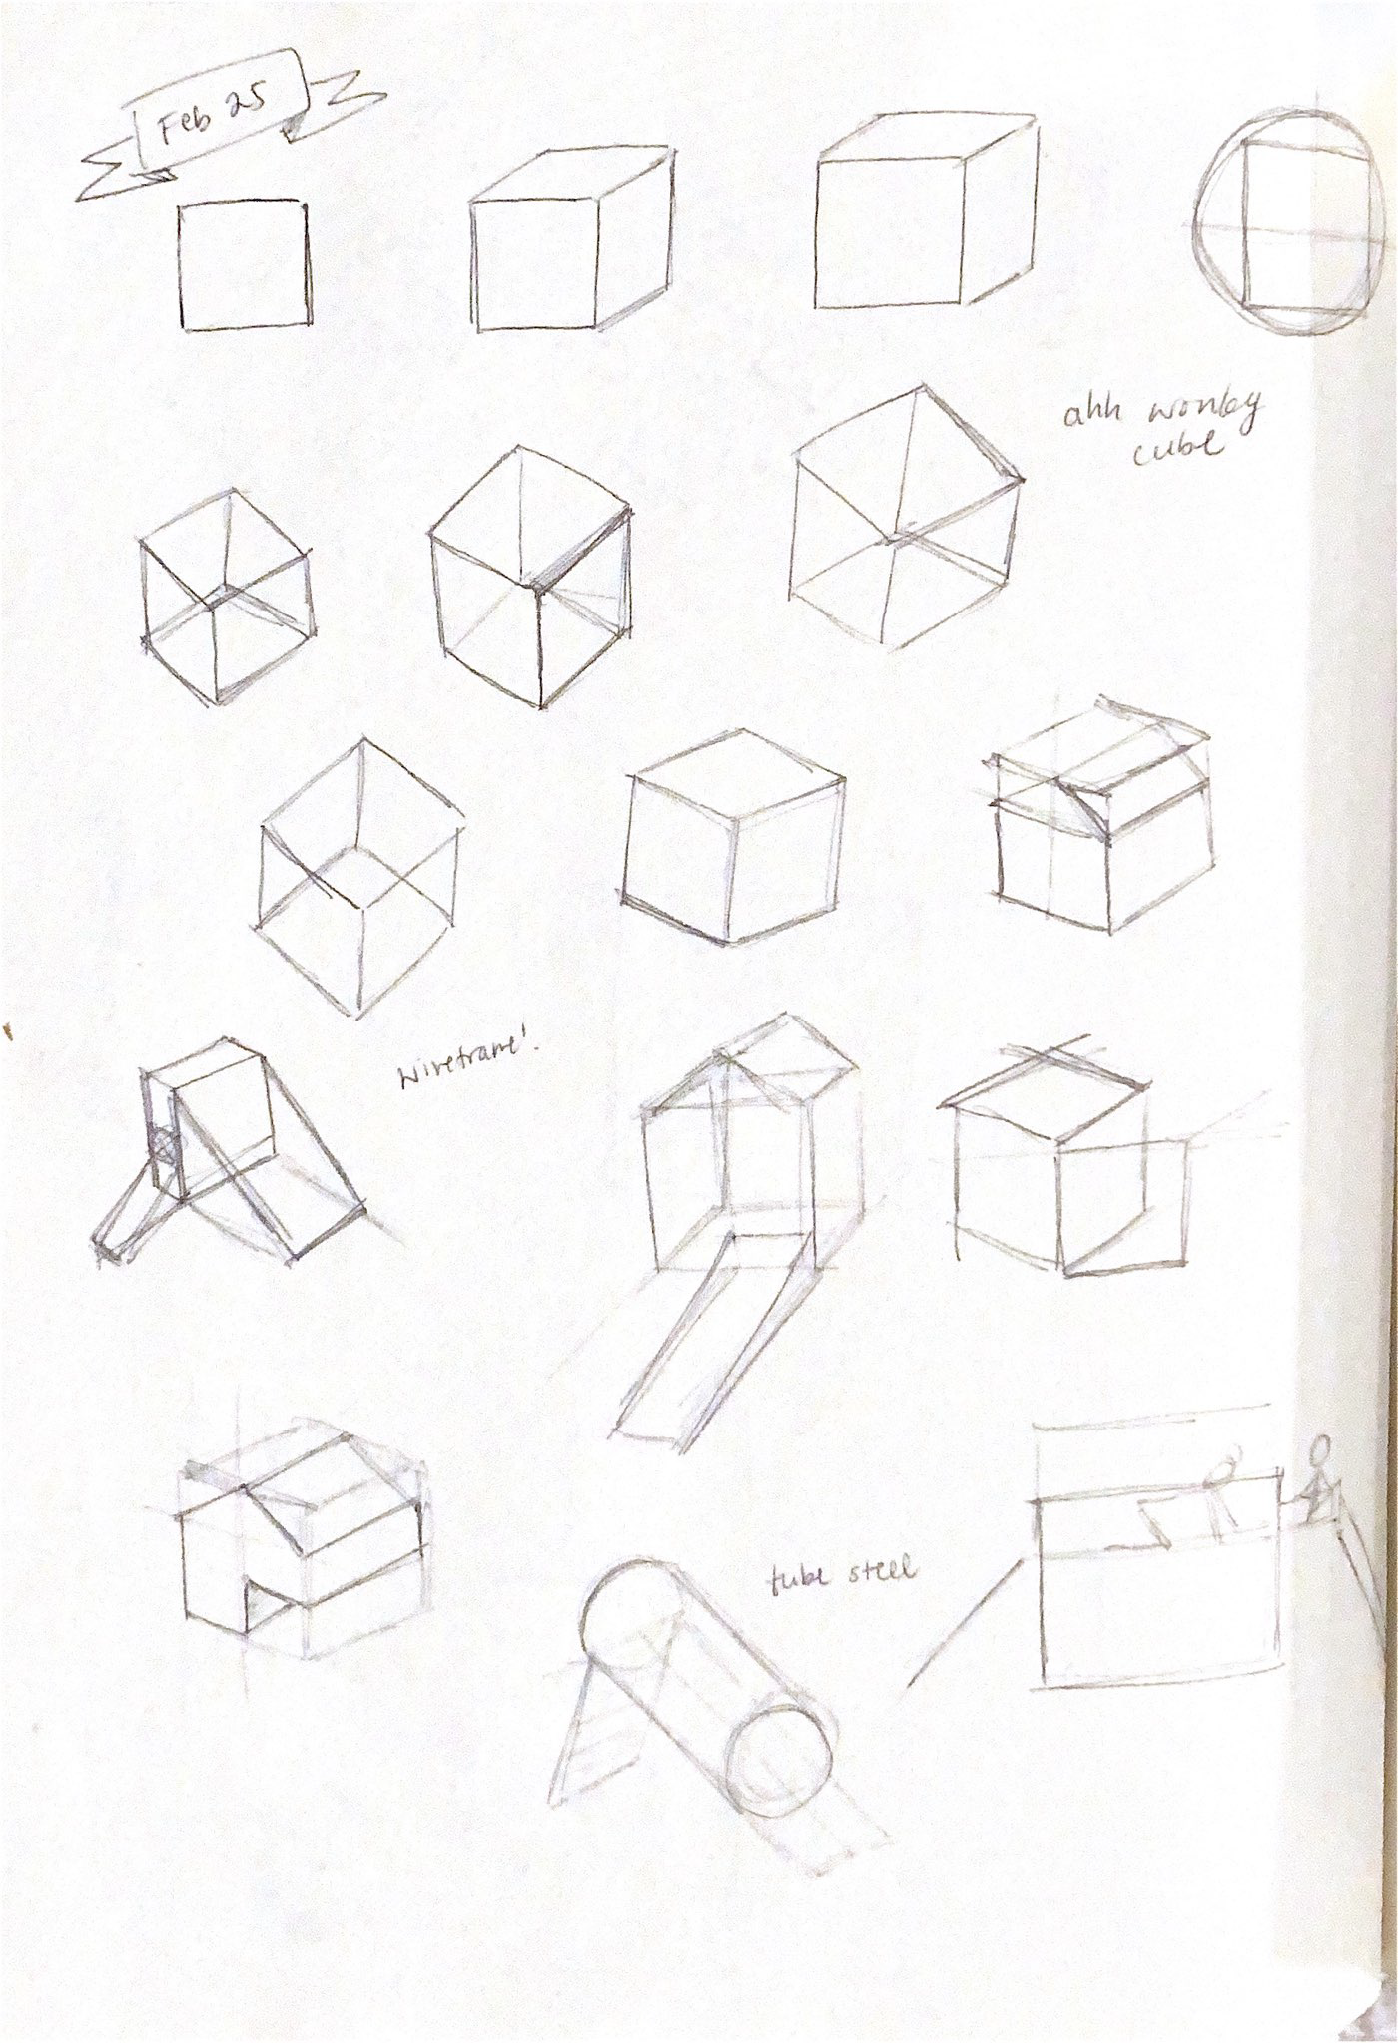 Feb 25
ahh wonky
cube
Wireframe!
tube steel